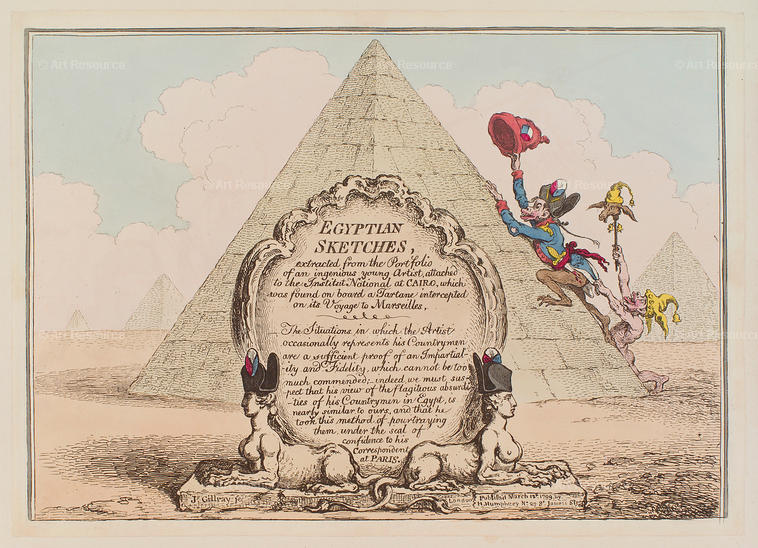 © Art Resource
© Art Resource
© Art Resource
© Art Resource
© Art Resource
© Art Resource
© Art Resource
© Art Resource
EGYPTIAN
SKETCHES,
extracted from the Portfolio
of an ingenious young Artist, attached
to the Institut National at CAIRO, which
was found on board a Tartane intercepted
on its Voyage to Marseilles,
The Situations in which the Artist
occasionally represents his Countrymen
are a sufficient proof of an Impartial-
ity and Fidelity, which cannot be too
much commended; – indeed, we must sus-
pect that his view of the flagitious absurdi-
-ties of his Countrymen in Egypt, is
nearly similar to ours, and that he
took this method of pourtraying
them, under the seal of
confidence to his
Correspondent
at PARIS.
Js. Gillray, fec.
London, Publish'd March 12th 1799, by
H. Humphrey No. 27 St. James's St.